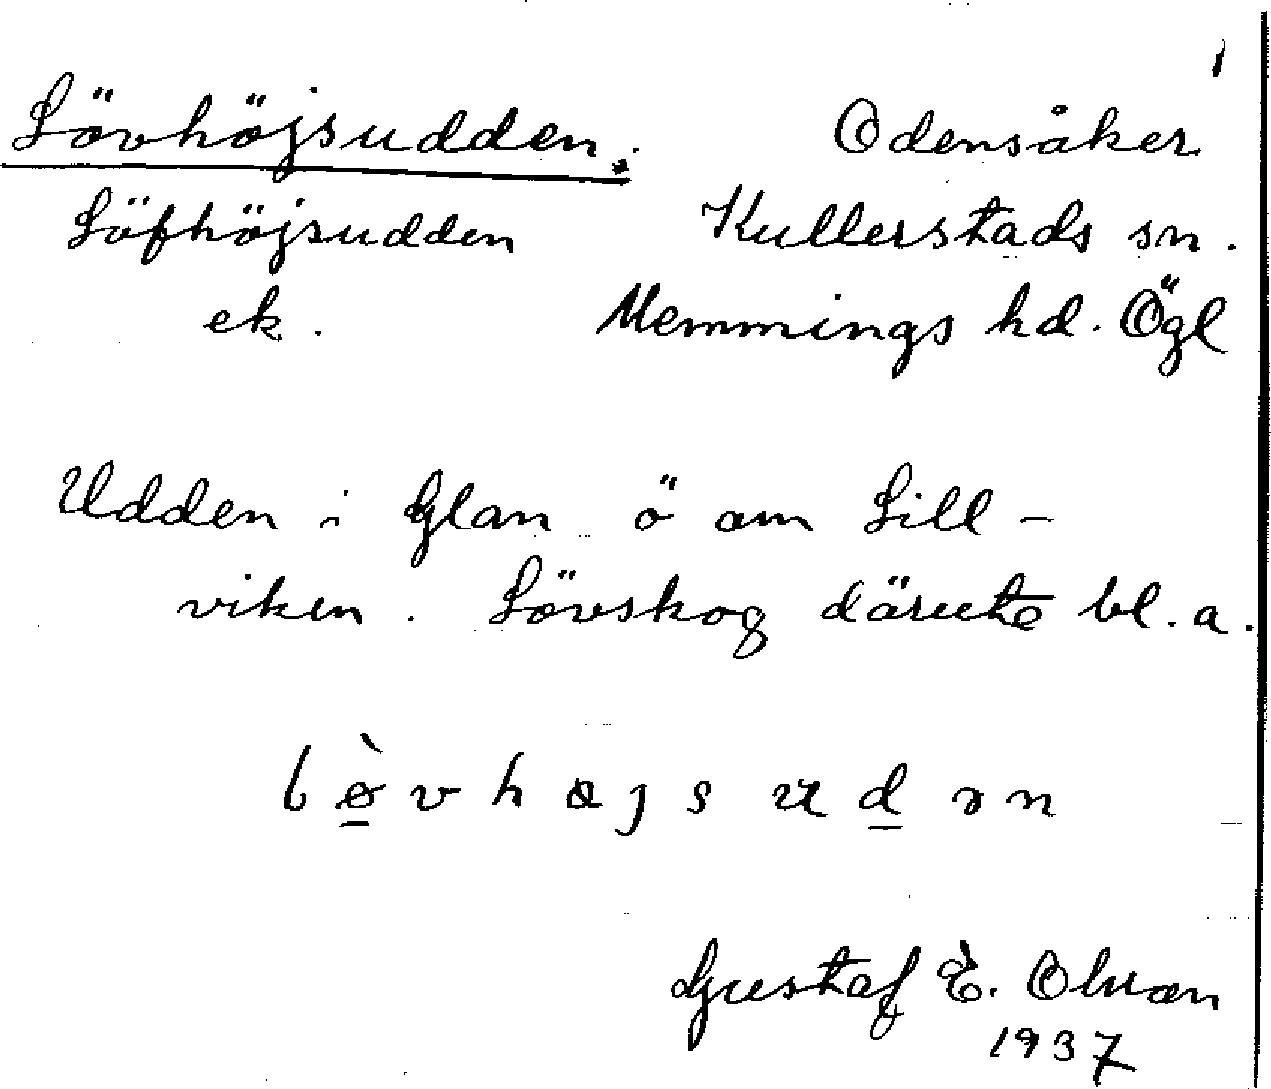 1
Lövhöjsudden. Odensåker
Löfhöjsudden Kullerstads sn.
ek. Memmings hd. Ögl
Udden i Glan ö om Lill-
viken. Lövskog därute bl. a.
Gustaf E. Olson
1937